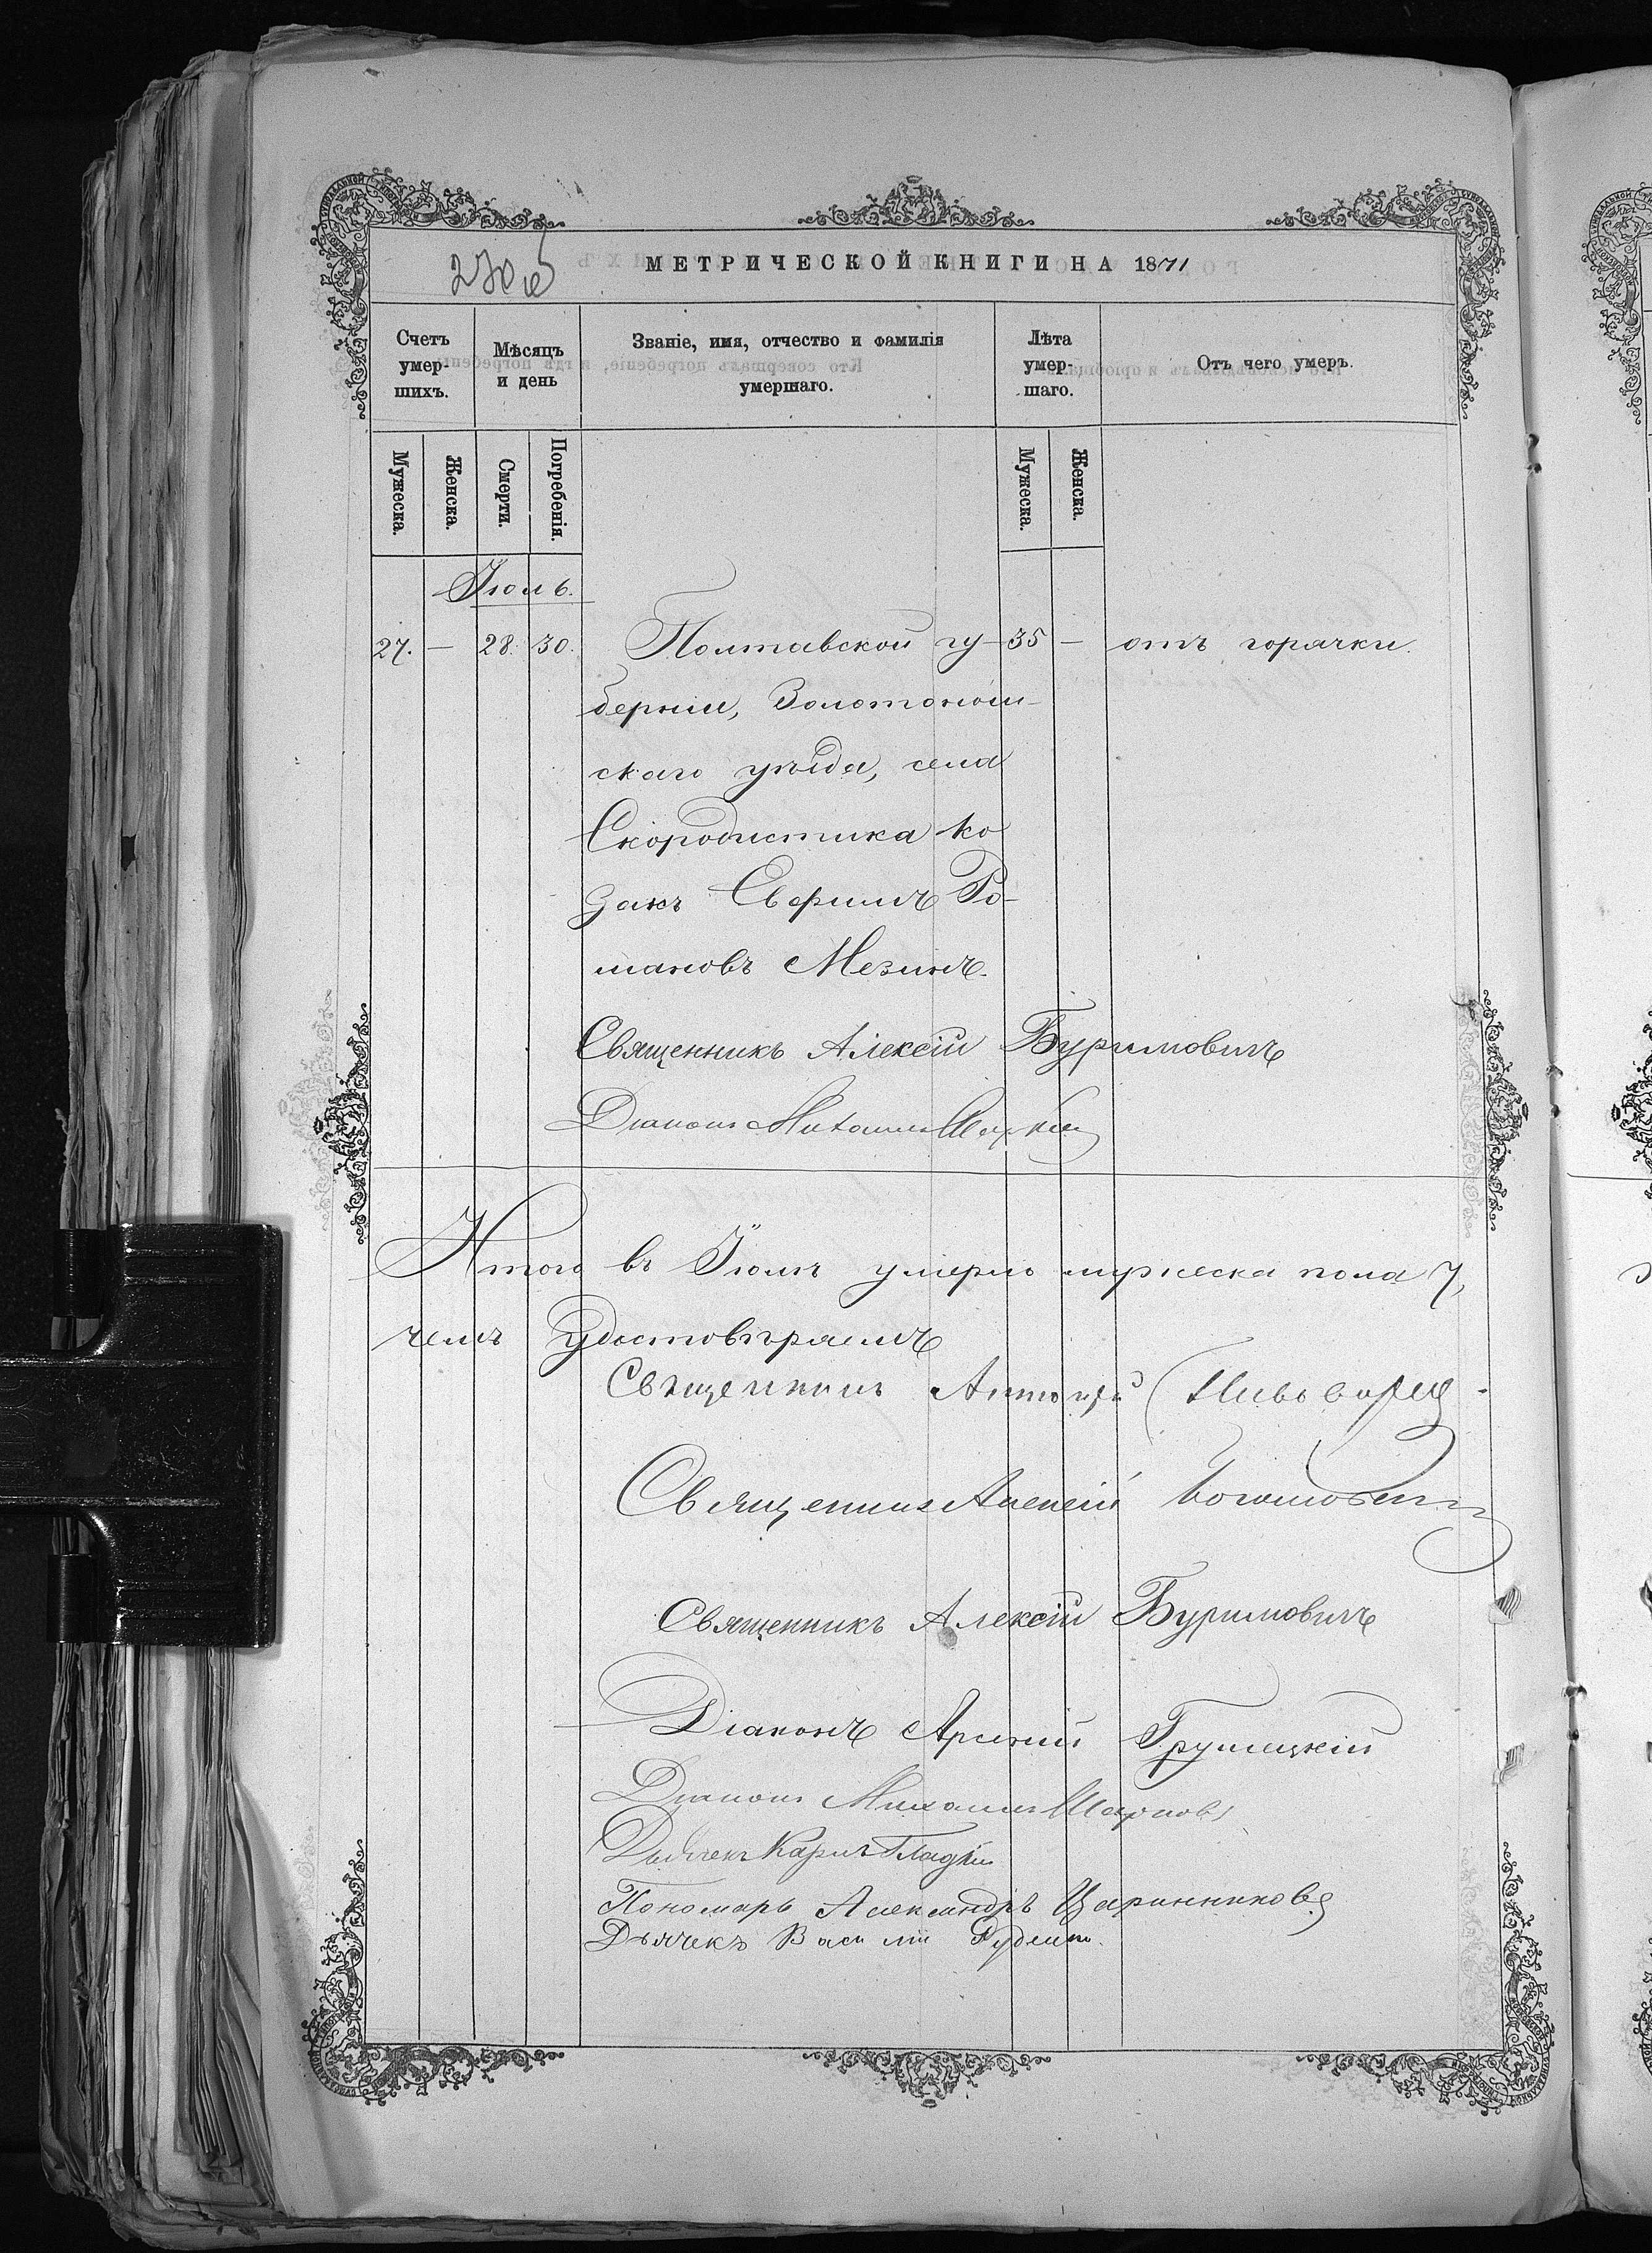 МЕТРИЧЕСКОЙ КНИГИ НА 1871
Счетъ умер- шихъ.
Мѣсяцъ и день
Званіе, имя, отчество и фамилія умершаго.
Лѣта умер- шаго.
Отъ чего умеръ.
Мужеска.
Женска.
Смерти.
Погребенія.
Мужеска.
Женска.
Іюль.
27. — 28. 30. Полтавской гу- 35 — отъ горячки.
берніи, Золотонош-
скаго уѣзда, села
Скородистика ко
закъ Ро-
мановъ Мезинъ.
Священникъ Алексій Буримовичъ
Діаконъ Михаилъ
Итого въ Іюлѣ умерло мужеска пола 7,
чемъ удостовѣряемъ
Священникъ Антоній
Священникъ Алексій
Священникъ Алексій Буримовичъ
Діаконъ Арсеній Грушецкій
Діаконъ Михаилъ
Дьячекъ Карпъ Гладкій
Пономарь Александръ Царинниковъ
Дьячекъ Василій Руденко.